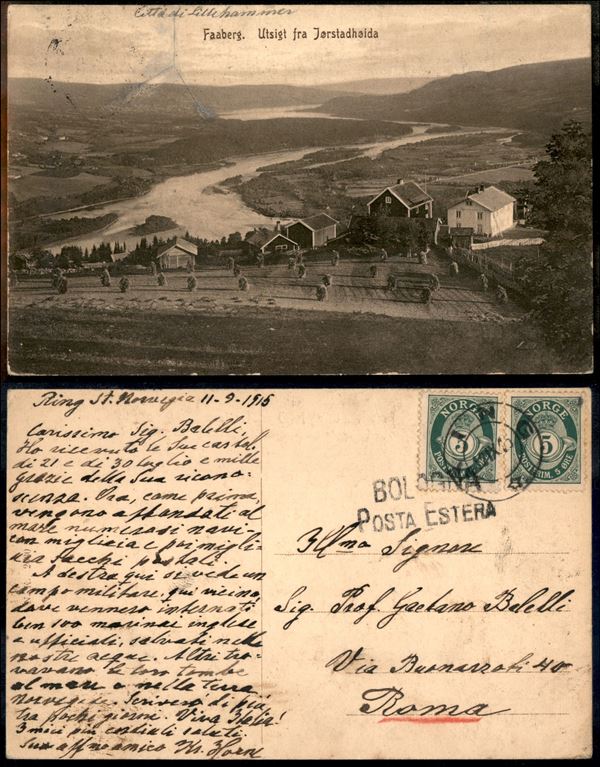 Città di Lillehammer
Faaberg. Utsigt fra Jørstadhøida
Ring St. Norvegia 11-9-1915
Carissimo Sig. Balelli,
Ho ricevuto le Sue cartol.
di 21 e di 30 luglio e mille
grazie della Sua ricono-
scenza. Ora, come prima,
vengono affondati al
mare numerosi navi
con migliaia e
sacchi postali.
A destra qui si vede un
campo militare, qui vicino,
dove vennero internati
ben 500 marinai inglese
e ufficiali, salvati nelle
nostre acque. Altri tro-
vavano le loro tombe
al mare o nella terra
norvegese. Scrivero di piú
tra pochi giorni. Viva Italia!
I miei più cordiali saluti
Suo affmo amico Kr. Horne
NORGE
5
POSTFRIM. 5 ØRE
NORGE
5
POSTFRIM. 5 ØRE
RING
BOLOGNA
POSTA ESTERA
Illmo Signore
Sig. Prof. Gaetano Balelli
Via Buonarroti 40
Roma